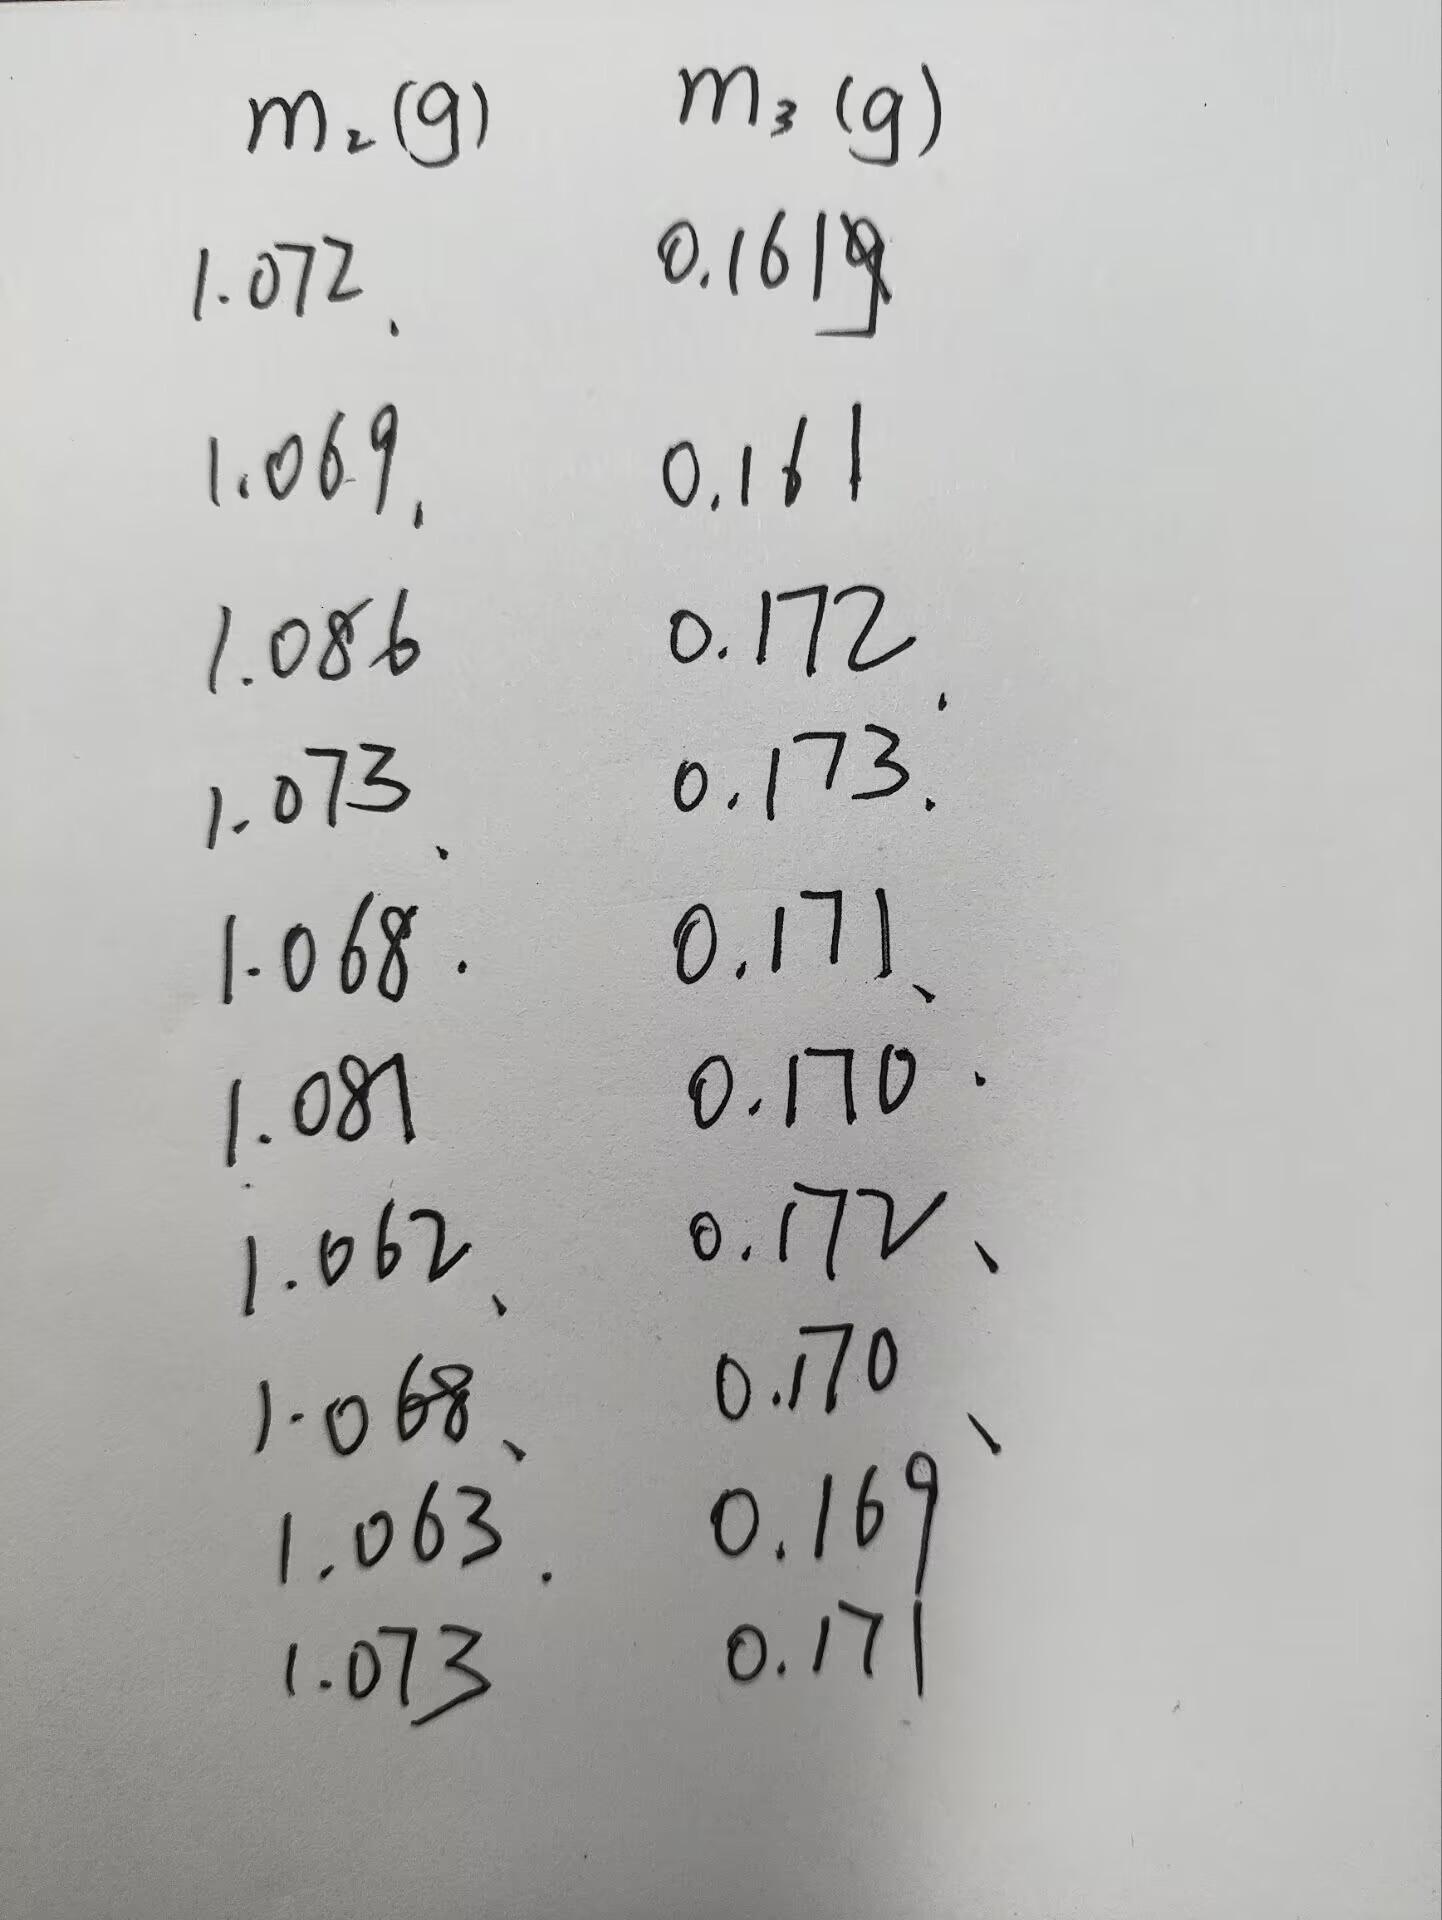 m₂(g) m₃(g)
1.072. 0.161
1.069. 0.161
1.086 0.172.
1.073、 0.173.
1.068. 0.171、
1.081 0.170.
1.062、 0.172、
1.068、 0.170、
1.063. 0.169
1.073 0.171